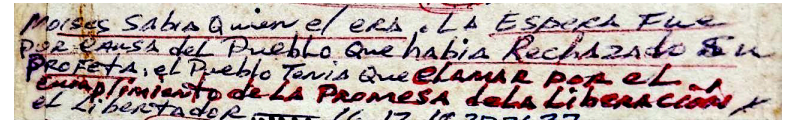 Moises Sabia Quien el era. La Espera Fue
por causa del Pueblo Que habia Rechazado Su
Profeta, el Pueblo Tenia Que clamar por el
cumplimiento de la Promesa de la Liberación y
el Libertador